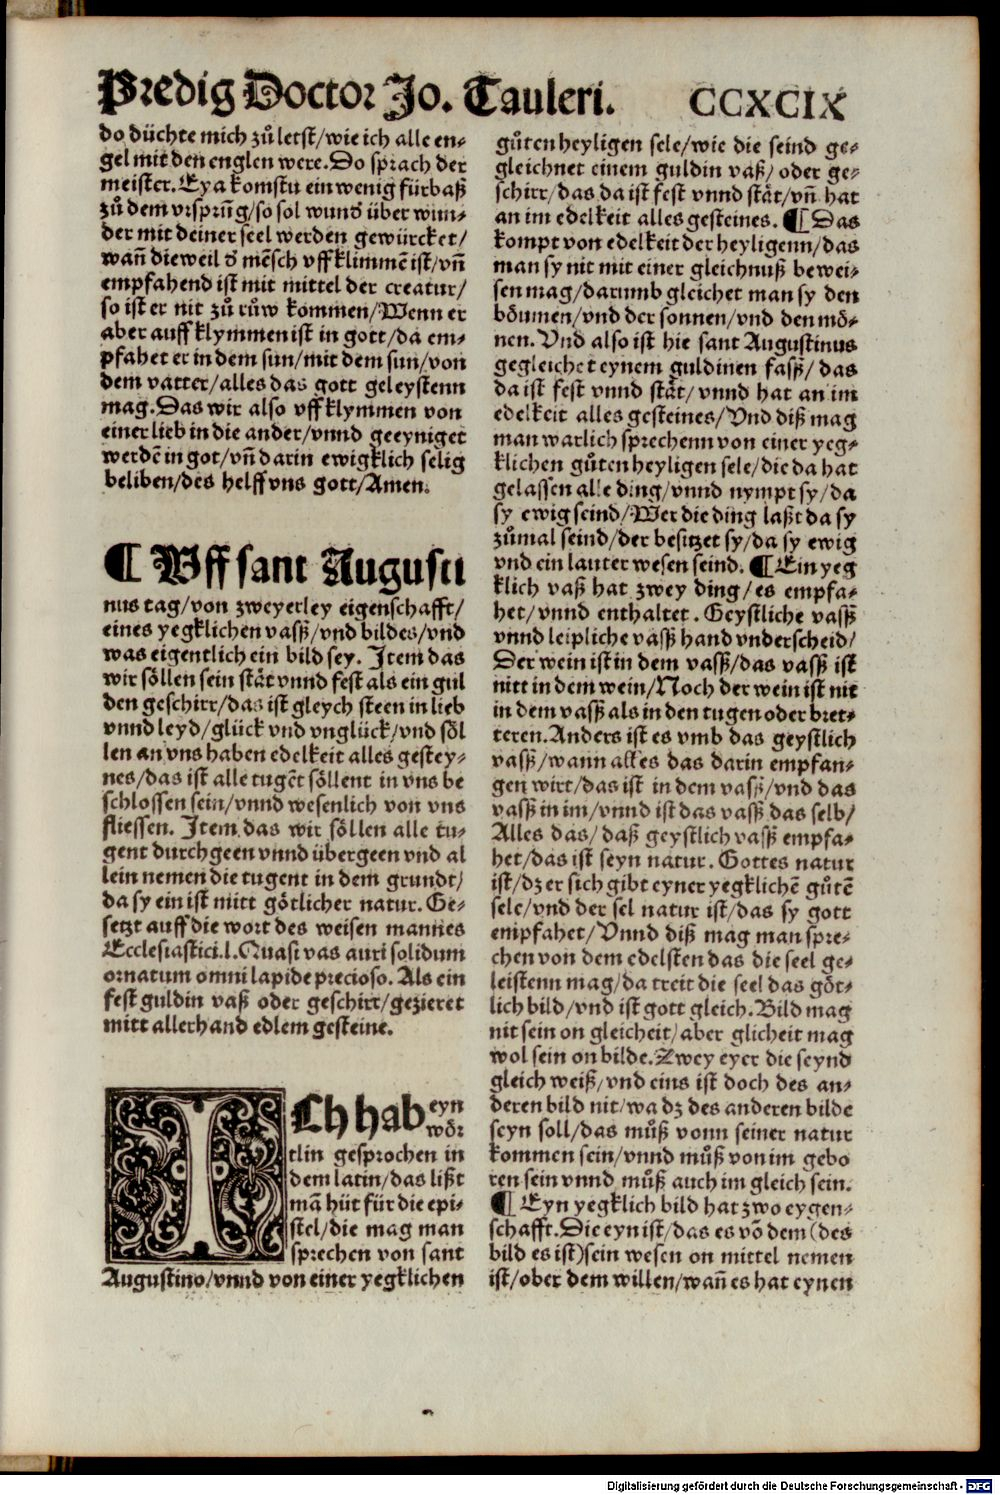 Predig Doctor Jo. Tauleri. CCXCIX
do düchte mich zů letst/wie ich alle en⸗
gel mit den englen were. Do sprach der
meister. Eya komstu ein wenig fürbaß
zů dem vrsprūg/so sol wund͛ über wun⸗
der mit deiner seel werden gewürcket/
wañ dieweil d͛ mēsch vffklimmē ist/vñ
empfahend ist mit mittel der creatur/
so ist er nit zů růw kommen/Wenn er
aber auffklymmen ist in gott/da em⸗
pfahet er in dem sun/mit dem sun/von
dem vatter/alles das gott geleystenn
mag. Das wir also vffklymmen von
einer lieb in die ander/vnnd geeyniget
werdē in got/vñ darin ewigklich selig
beliben/des helff vns gott/Amen.
¶ Vff sant Augusti
nus tag/von zweyerley eigenschafft/
eines yegklichen vasß/vnd bildes/vnd
was eigentlich ein bild sey. Item das
wir söllen sein stät vnnd fest als ein gul
den geschirr/das ist gleych steen in lieb
vnnd leyd/glück vnd vnglück/vnd söl
len an vns haben edelkeit alles gestey⸗
nes/das ist alle tugēt söllent in vns be
schlossen sein/vnnd wesenlich von vns
fliessen. Item das wir söllen alle tu⸗
gent durchgeen vnnd übergeen vnd al
lein nemen die tugent in dem grundt/
da sy ein ist mitt götlicher natur. Ge⸗
setzt auff die wort des weisen mannes
Ecclesiastici.l. Quasi vas auri solidum
ornatum omni lapide precioso. Als ein
fest guldin vaß oder geschirr/gezieret
mitt allerhand edlem gesteine.
ICh hab eyn
wör
tlin gesprochen in
dem latin/das lißt
mā hüt für die epi⸗
stel/die mag man
sprechen von sant
Augustino/vnnd von einer yegklichen
gůten heyligen sele/wie die seind ge⸗
gleichnet einem guldin vaß/oder ge⸗
schirr/das da ist fest vnnd stät/vñ hat
an im edelkeit alles gesteines. ¶ Das
kompt von edelkeit der heyligenn/das
man sy nit mit einer gleichnuß bewei⸗
sen mag/darumb gleichet man sy den
böumen/vnd der sonnen/vnd den mō⸗
nen. Vnd also ist hie sant Augustinus
gegleichet eynem guldinen fasß/das
da ist fest vnnd stät/vnnd hat an im
edelkeit alles gesteines/Vnd diß mag
man warlich sprechenn von einer yeg⸗
klichen gůten heyligen sele/die da hat
gelassen alle ding/vnnd nympt sy/da
sy ewig seind/Wer die ding laßt da sy
zůmal seind/der besitzet sy/da sy ewig
vnd ein lauter wesen seind. ¶ Ein yeg
klich vaß hat zwey ding/es empfa⸗
het/vnnd enthaltet. Geystliche vasß
vnnd leipliche vasß hand vnderscheid/
Der wein ist in dem vasß/das vasß ist
nitt in dem wein/Noch der wein ist nit
in dem vasß als in den tugen oder bret⸗
teren. Anders ist es vmb das geystlich
vasß/wann alles das darin empfan⸗
gen wirt/das ist in dem vasß/vnd das
vasß in im/vnnd ist das vasß das selb/
Alles das/daß geystlich vasß empfa⸗
het/das ist seyn natur. Gottes natur
ist/dz er sich gibt eyner yegklichē gůtē
sele/vnd der sel natur ist/das sy gott
empfahet/Vnnd diß mag man spre⸗
chen von dem edelsten das die seel ge⸗
leistenn mag/da treit die seel das göt⸗
lich bild/vnd ist gott gleich. Bild mag
nit sein on gleicheit/aber glicheit mag
wol sein on bilde. Zwey eyer die seynd
gleich weiß/vnd eins ist doch des an⸗
deren bild nit/wa dz des anderen bilde
seyn soll/das můß vonn seiner natur
kommen sein/vnnd můß von im gebo
ren sein vnnd můß auch im gleich sein.
¶ Eyn yegklich bild hat zwo eygen⸗
schafft. Die eyn ist/das es vō dem (des
bild es ist) sein wesen on mittel nemen
ist/ober dem willen/wañ es hat eynen
Digitalisierung gefördert durch die Deutsche Forschungsgemeinschaft - DFG